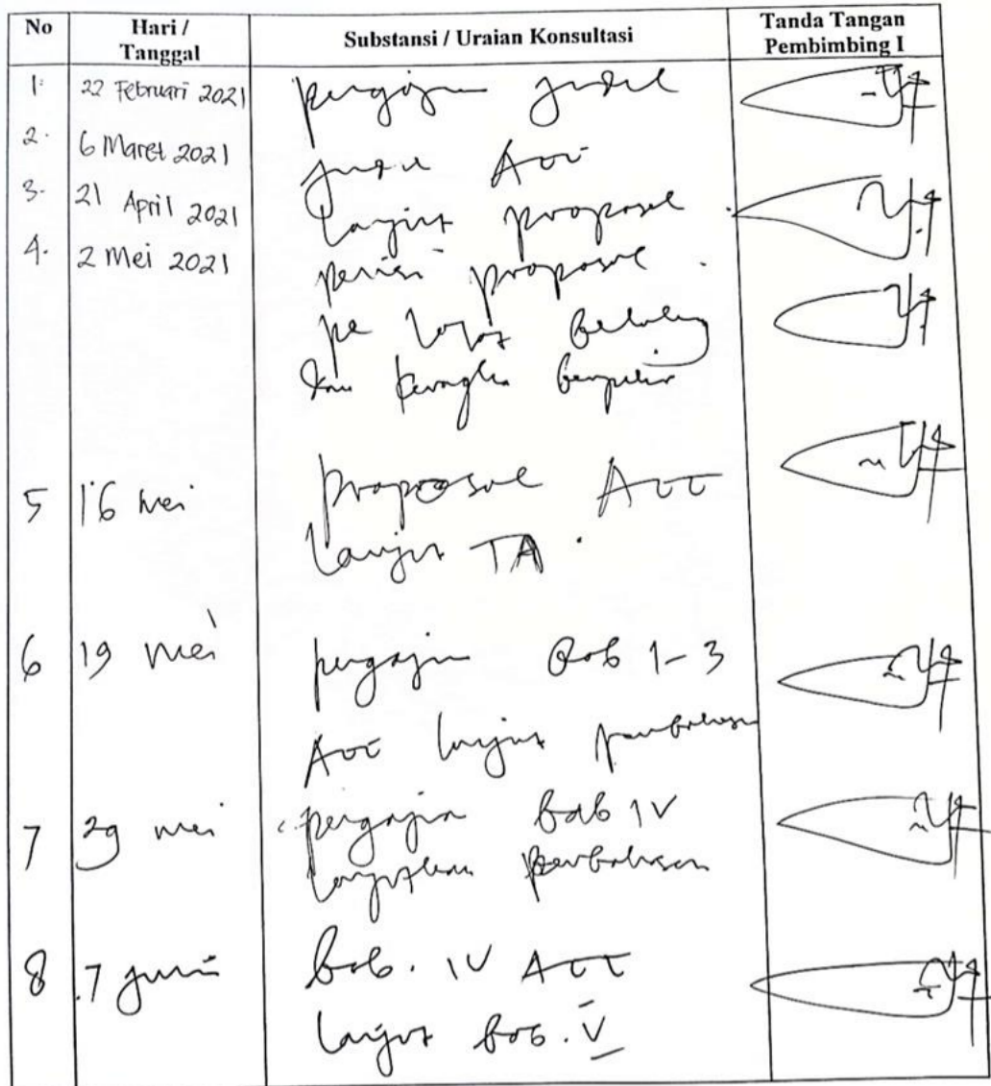 No Hari / Tanggal Substansi / Uraian Konsultasi Tanda Tangan Pembimbing I
1. 22 Februari 2021 pengajuan judul
2. 6 Maret 2021 judul Acc
3. 21 April 2021 lanjut proposal
4. 2 Mei 2021 proposal
latar belakang
dan kerangka berpikir
5 16 Mei proposal Acc
lanjut TA.
6 19 Mei pengajuan Bab 1-3
Acc lanjut pembahasan
7 29 mei pengajuan bab IV
lanjutkan pembahasan
8 7 juni bab. IV Acc
lanjut bab. V